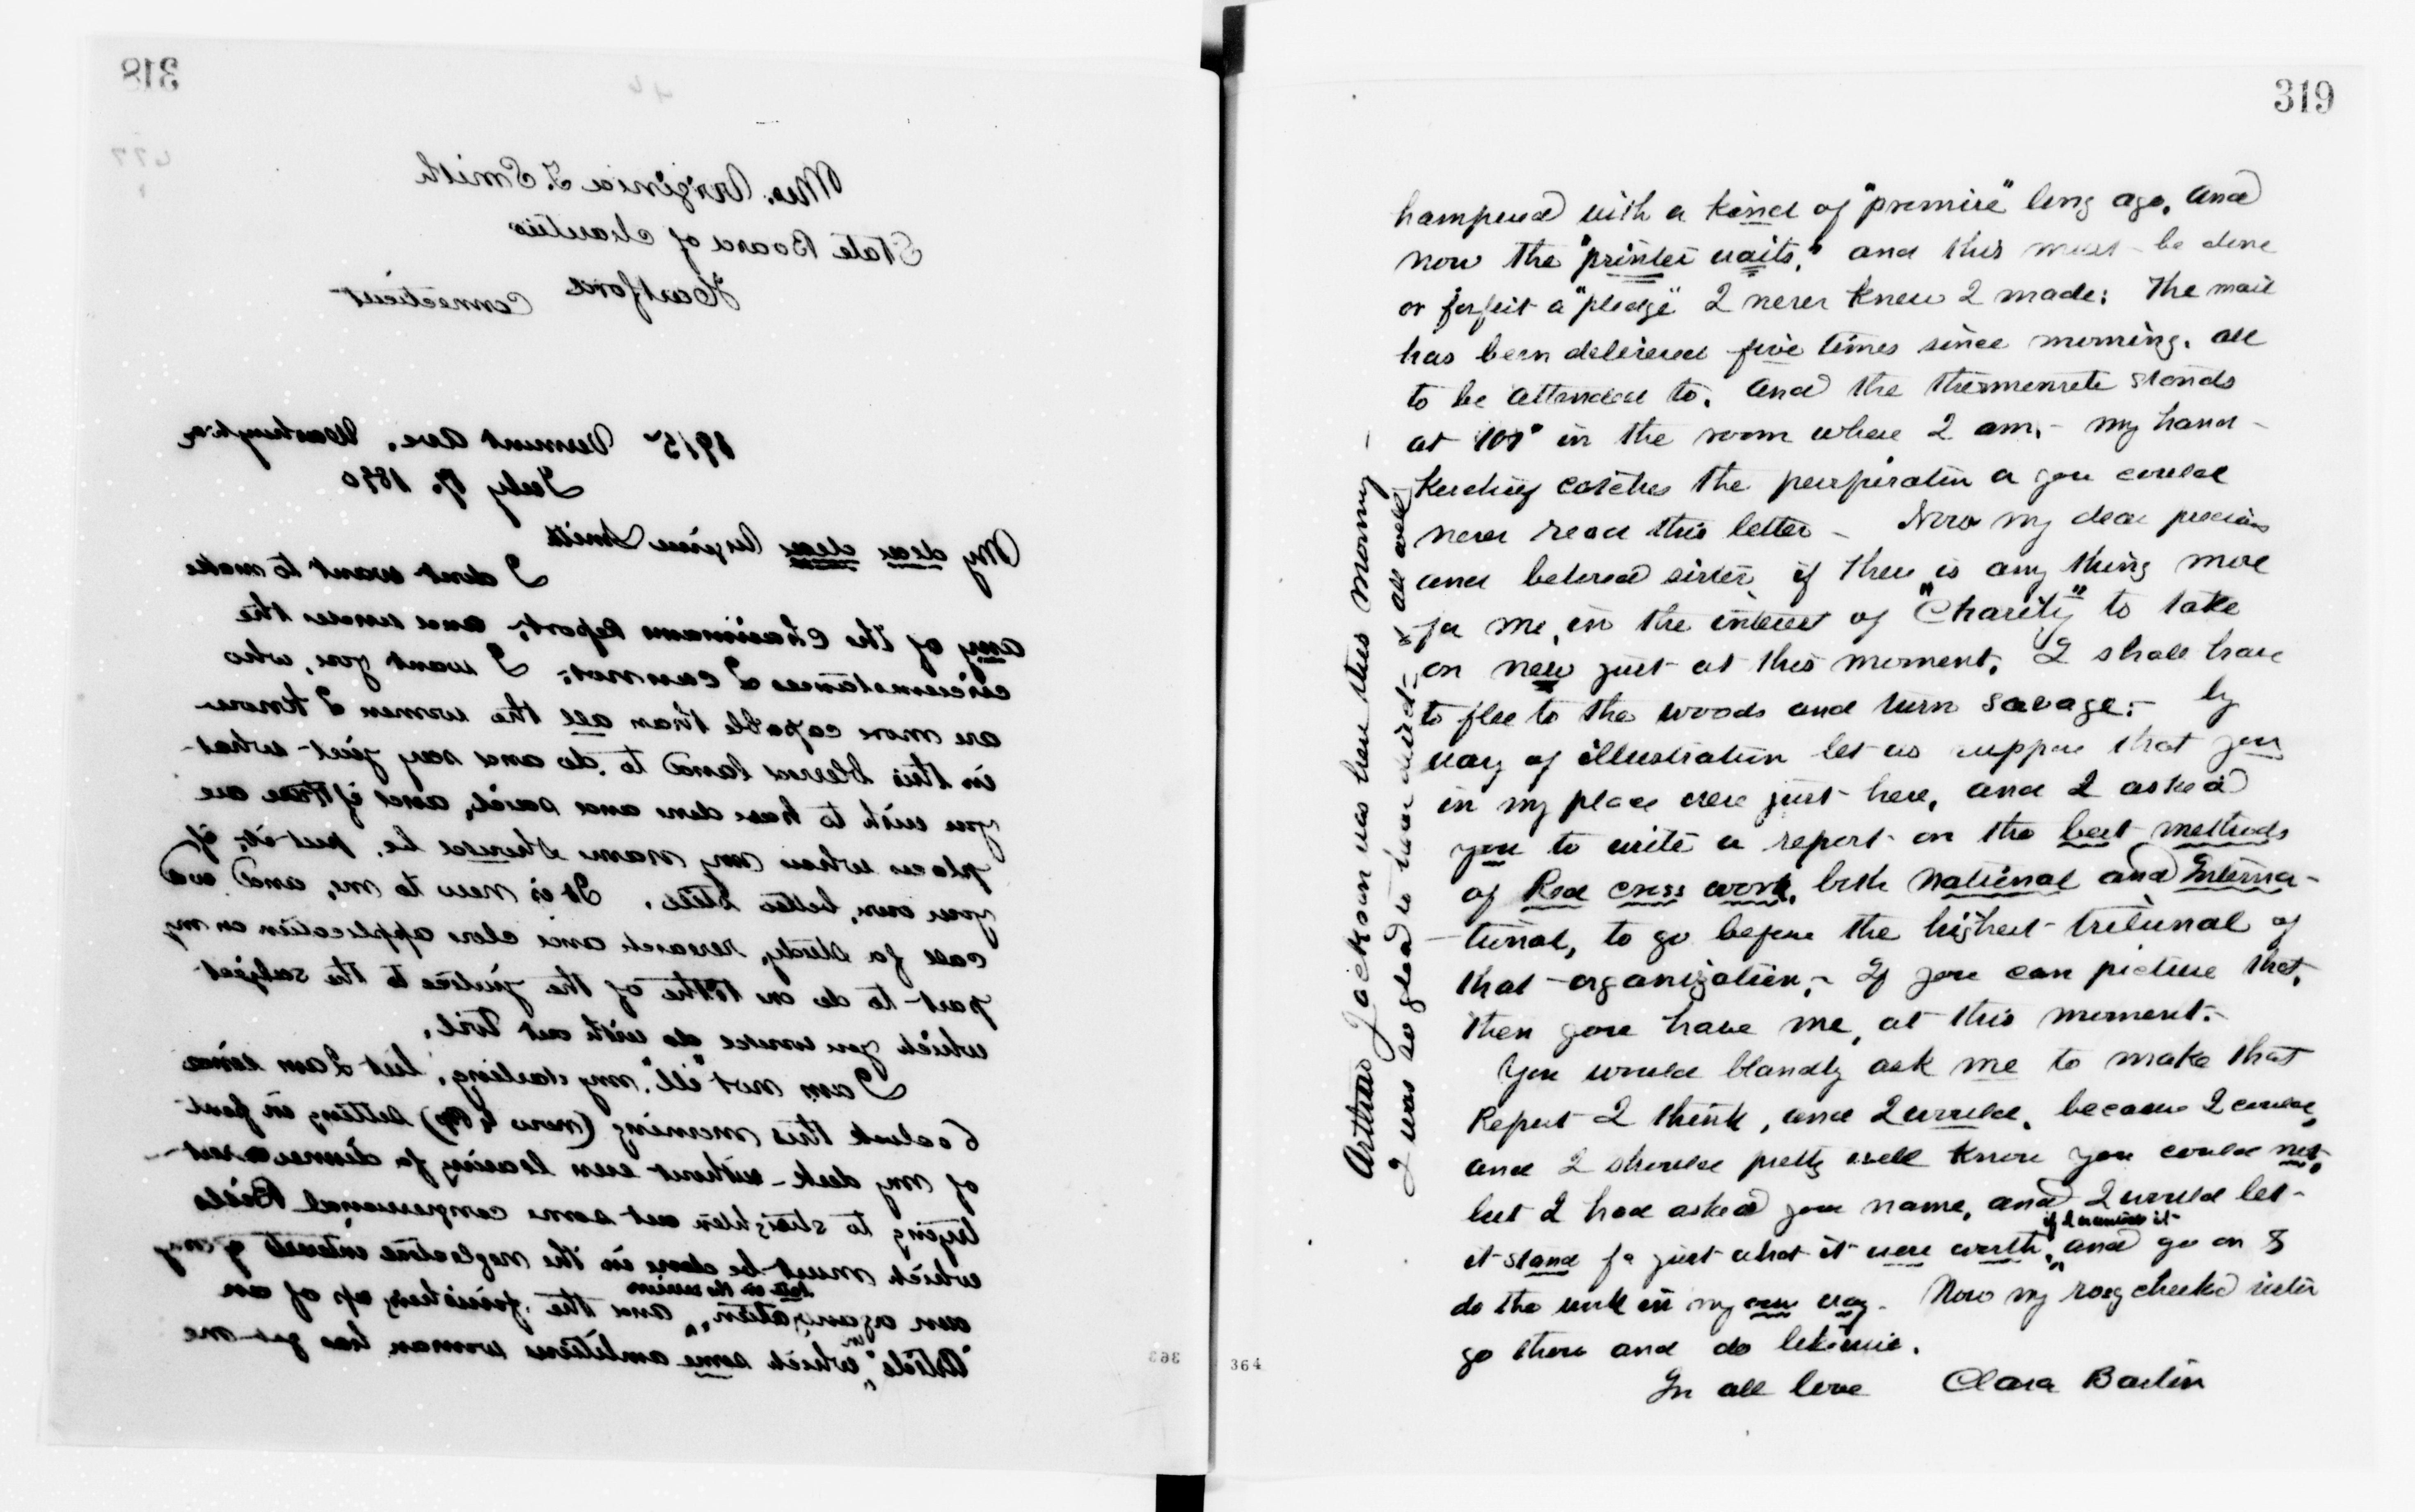 318
Mrs. Virginia T. Smith
State Board of Charities
Hartford Connecticut
1915 Vermont Ave. Washington
July 9. 1890
My dear dear Virginia Smith
I dont want to make
any of the Chairmans Report; and under the
circumstances I cannot; I want you, who
are more capable than all the women I know
in this blessed land to do and say just what
you wish to have done and said, and if there are
places where my name should be, put it; if
your own, better still. It is new to me, and would
call for study, research and close application on my
part to do one tithe of the justice to the subject
which you would do with out toil.
I am not "ill" my darling, but I am since
6 oclock this morning (now 4 PM) sitting in front
of my desk without even leaving for dinner
trying to straighten out some congressional Bills
which must be done in the neglected interests of my
own organization, and the finishing up of an
late in the session
"Article" which some ambitious woman has got me
in
363
319
hampered with a kind of "promise" long ago, and
now the "printer waits," and this must be done
or forfeit a "pledge" I never knew I made: The mail
has been delivered five times since morning, all
to be attended to, and the thermometer stands
at 101° in the room where I am,- my hand-
kerchief catches the perspiration or you could
never read this letter - Now my dear precious
and beloved sister, if there is any thing more
for me, in the interest of "Charity" to take
on new just at this moment, I shall have
to flee to the woods and turn savage;- by
way of illustration let us suppose that you
in my place were just here, and I asked
you to write a report on the best methods
of Red Cross work, both National and Interna-
tional, to go before the highest tribunal of
that organization,- If you can picture that,
then you have me, at this moment.-
You would blandly ask me to make that
Report I think, and I would, because I could,
and I should pretty well know you could not,
but I had asked your name, and I would let
if I wanted it
it stand for just what it were worth, and go on &
do the work in my own way. Now my rosy cheeked sister
go thou and do likewise.
In all love Clara Barton
364
Arthur Jackson was here this morning -
I was so glad to hear direct- & all well